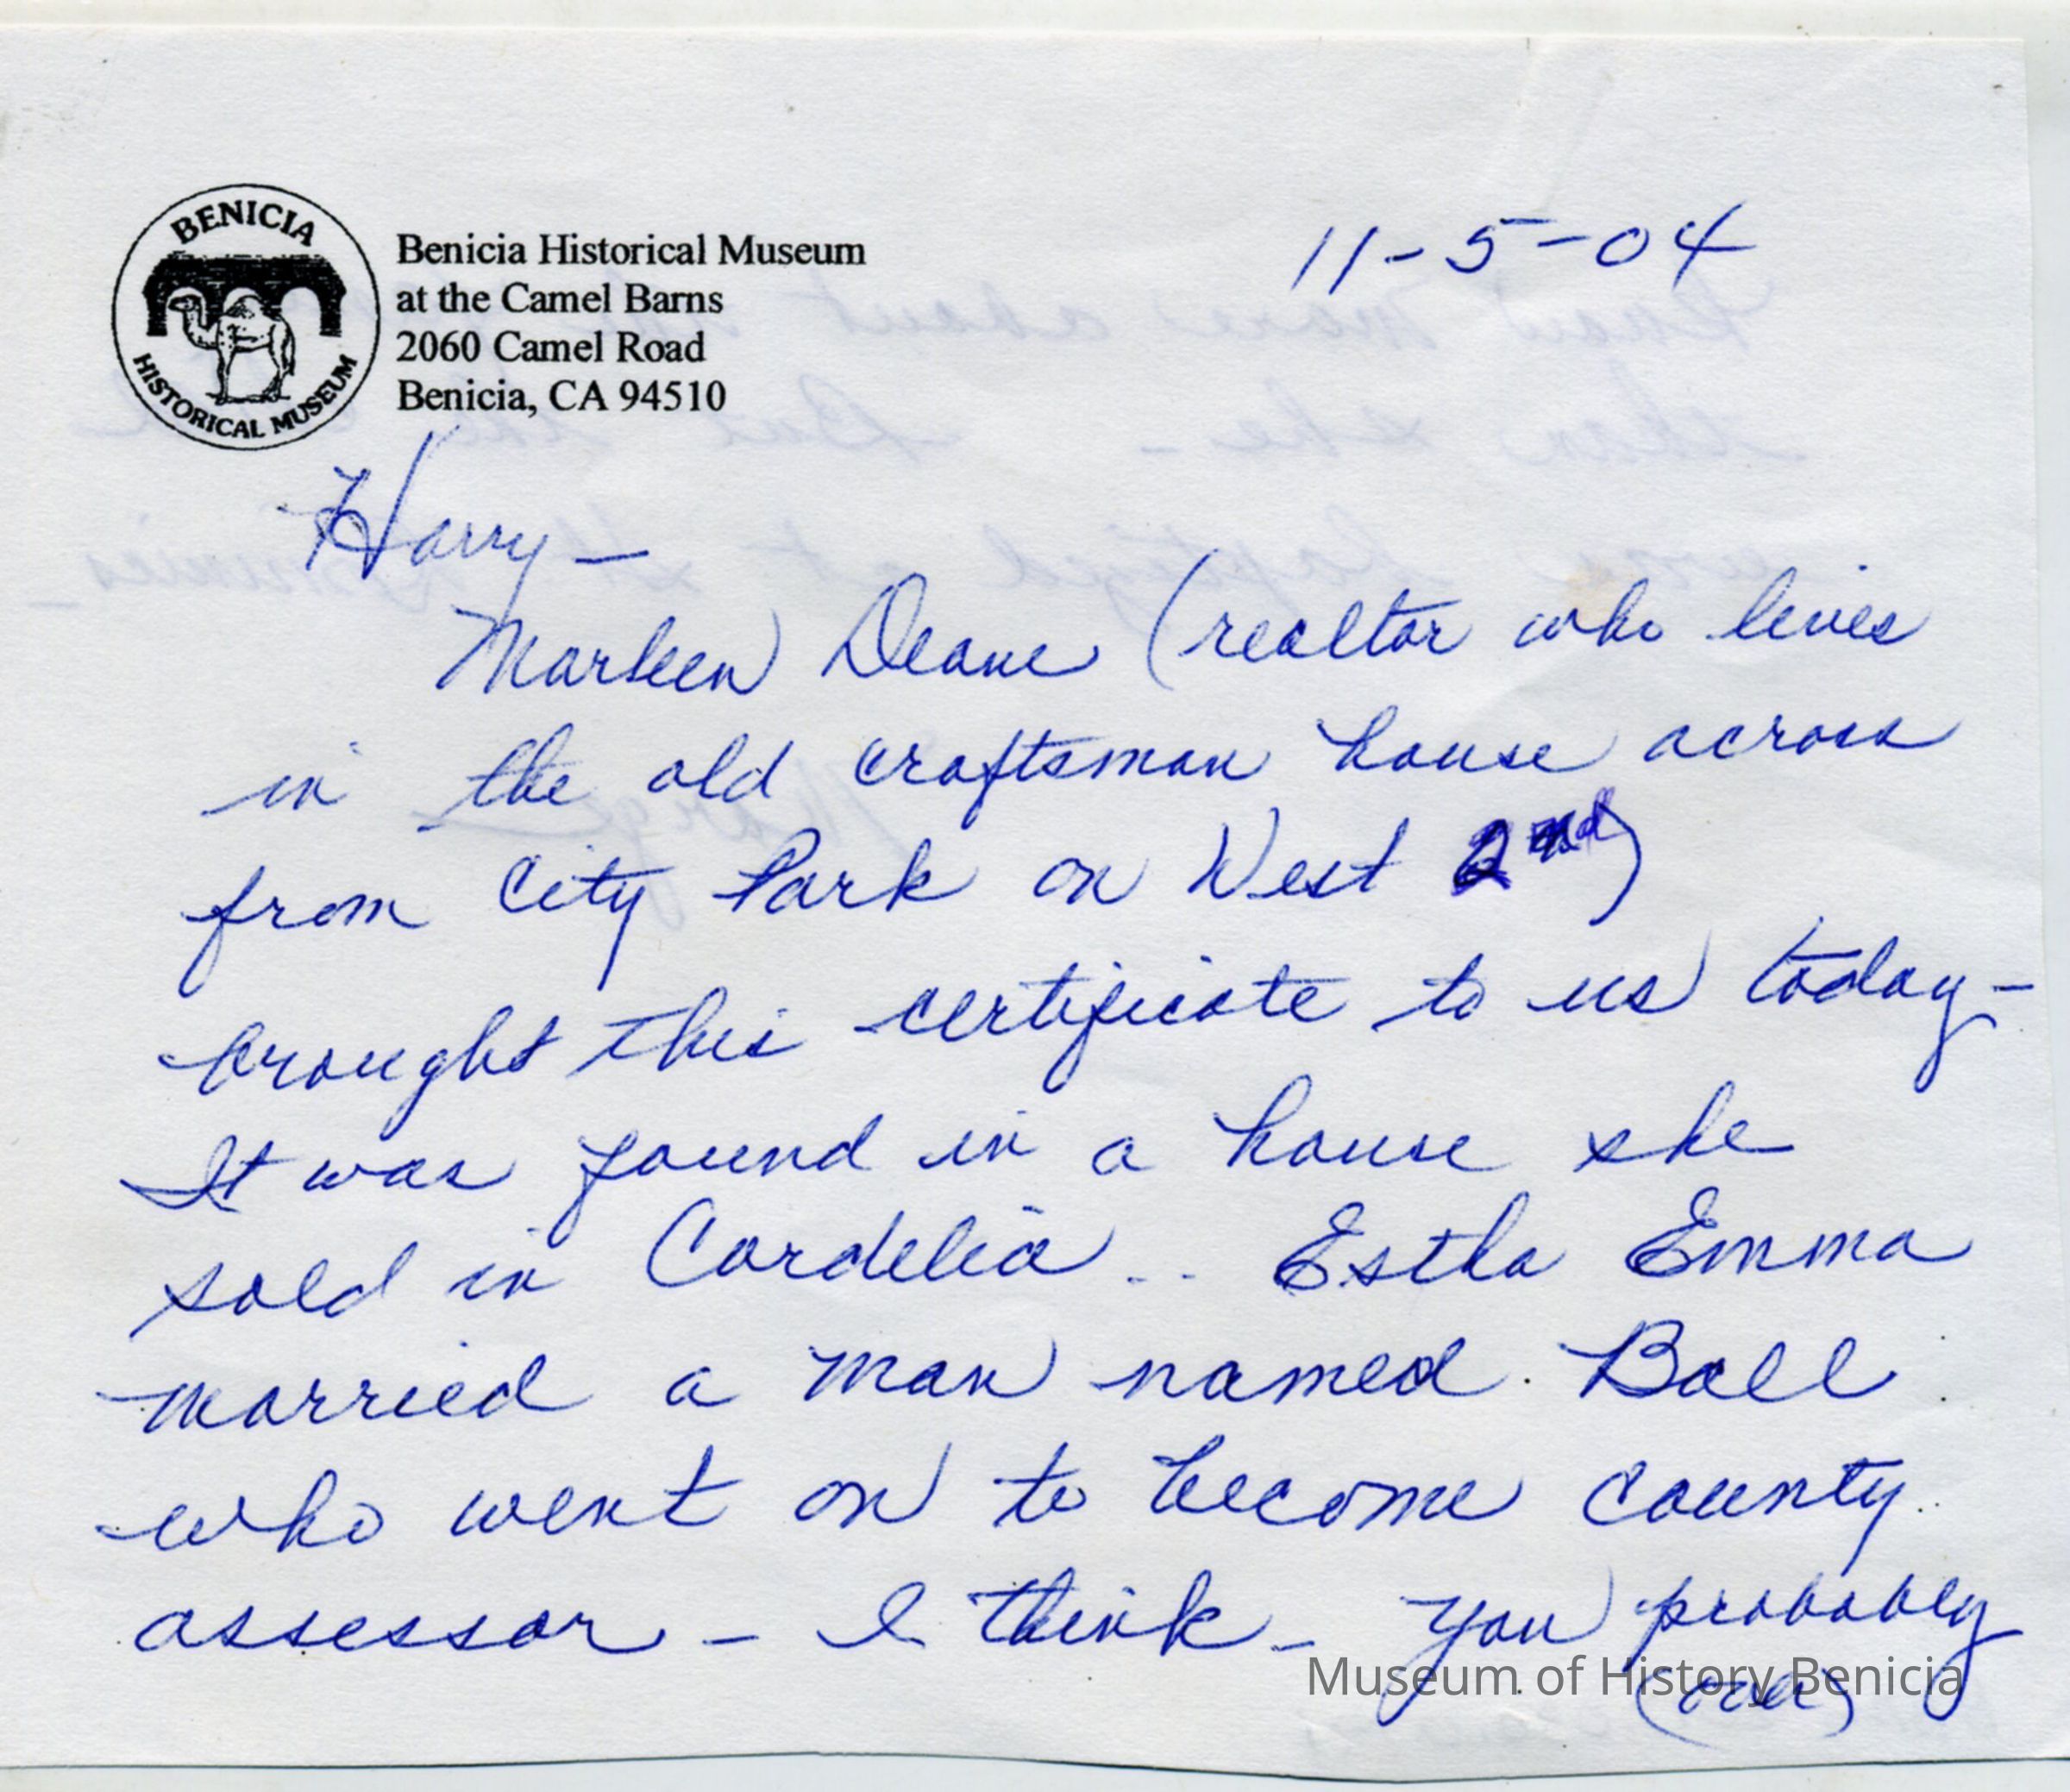 BENICIA
HISTORICAL MUSEUM
Benicia Historical Museum
at the Camel Barns
2060 Camel Road
Benicia, CA 94510
11-5-04
Harry –
Marleen Deane (realtor who lives
in the old craftsman house across
from City Park on West 2nd)
brought this certificate to us today –
It was found in a house she
sold in Cordelia .. Estha Emma
married a man named Ball
who went on to become county
assessor – I think – you probably
(over)
Museum of History Benicia